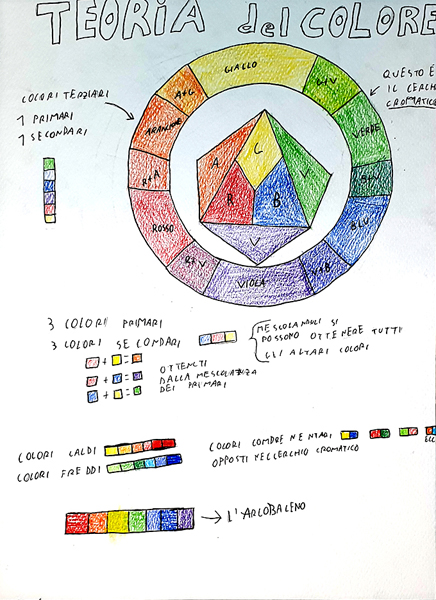 TEORIA del COLORE
COLORI TERZIARI
1 PRIMARI
1 SECONDARI
QUESTO É
IL CERCH
CROMATICO
GIALLO
G+V
VERDE
B+V
BLU
V+B
VIOLA
R+V
ROSSO
R+A
ARANCIONE
A+G
A
G
V
R
B
V
3 COLORI PRIMARI
3 COLORI SECONDARI
+ =
+ =
+ =
OTTENUTI
DALLA MESCOLANZA
DEI PRIMARI
MESCOLANDOLI SI
POSSONO OTTENERE TUTTI
GLI ALTARI COLORI
COLORI CALDI
COLORI FREDDI
OPPOSTI NEL CERCHIO CROMATICO
L'ARCOBALENO